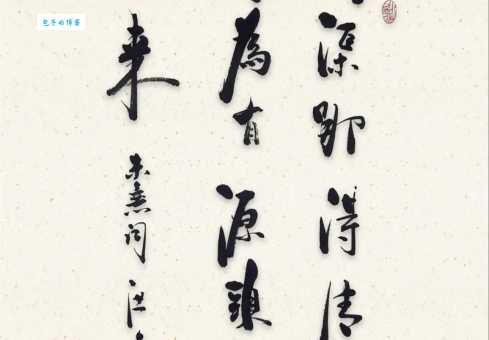 包子的博客
渠那得清
為有源頭
来
朱熹